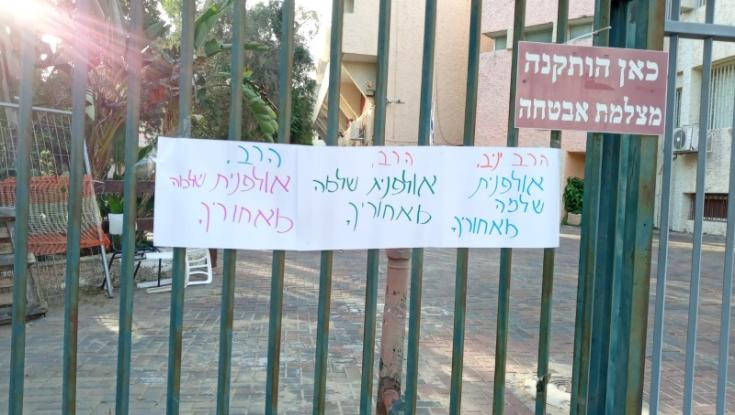 כאן הותקנה
מצלמת אבטחה
הרב יניב,
אולפנית
שלמה
מאחוריך.
הרב,
אולפנית שלמה
מאחוריך.
הרב,
אולפנית שלמה
מאחוריך.